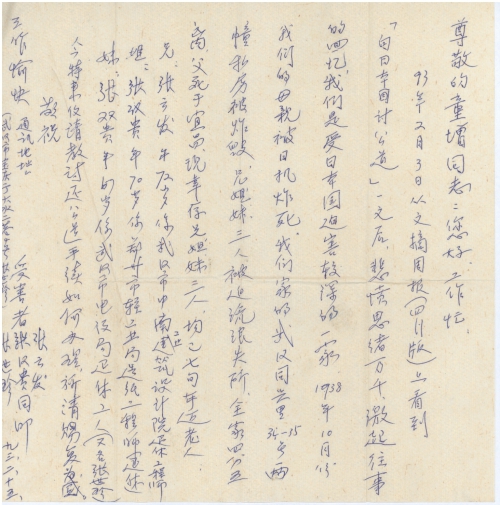 尊敬的童增同志：您好，工作忙。
93年2月3日从文摘周报（四川版）上看到
「向日本国讨公道」一文后，悲愤思绪万千，激起往事
的回忆，我们是受日本国迫害较深的一家 1938年10月份
我们的母亲被日机炸死。我们家的武汉同兴里 号两
幢私房被炸毁，兄姐妹三人被迫流浪失所，全家四分五
离，父死于宜昌，现幸存兄姐妹三人，均已七旬年近老人
兄：张云发 年 岁，系武汉市中南建筑设计院退休工程师
姐：张双贵 年70岁，系 市轻工业局造纸工程师退休
妹：张双贵 年 岁，系武汉市电设局退休工人（又名张世珍）
今特来仅请教讨还公道手续如何办理 请赐复为感。
敬祝
工作愉快
受害者 张云发 张汉贵 同叩
张世珍 九三、二、十五、
通讯地址